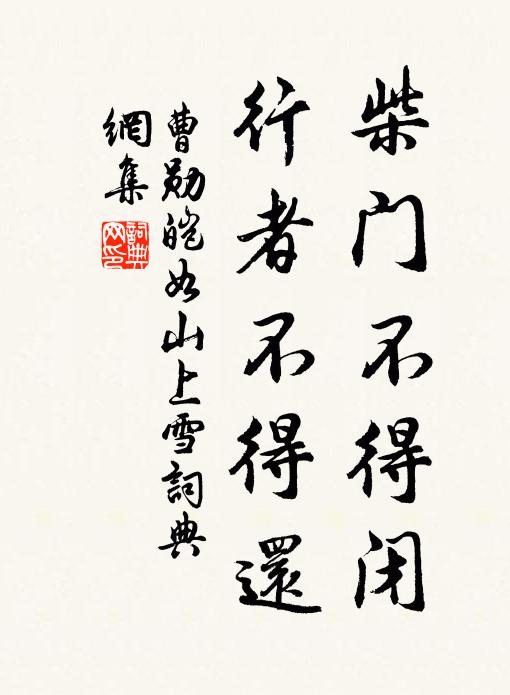 柴門不得闭
行者不得還
曹勛皑如山上雪詞典
網集
詞典
网印